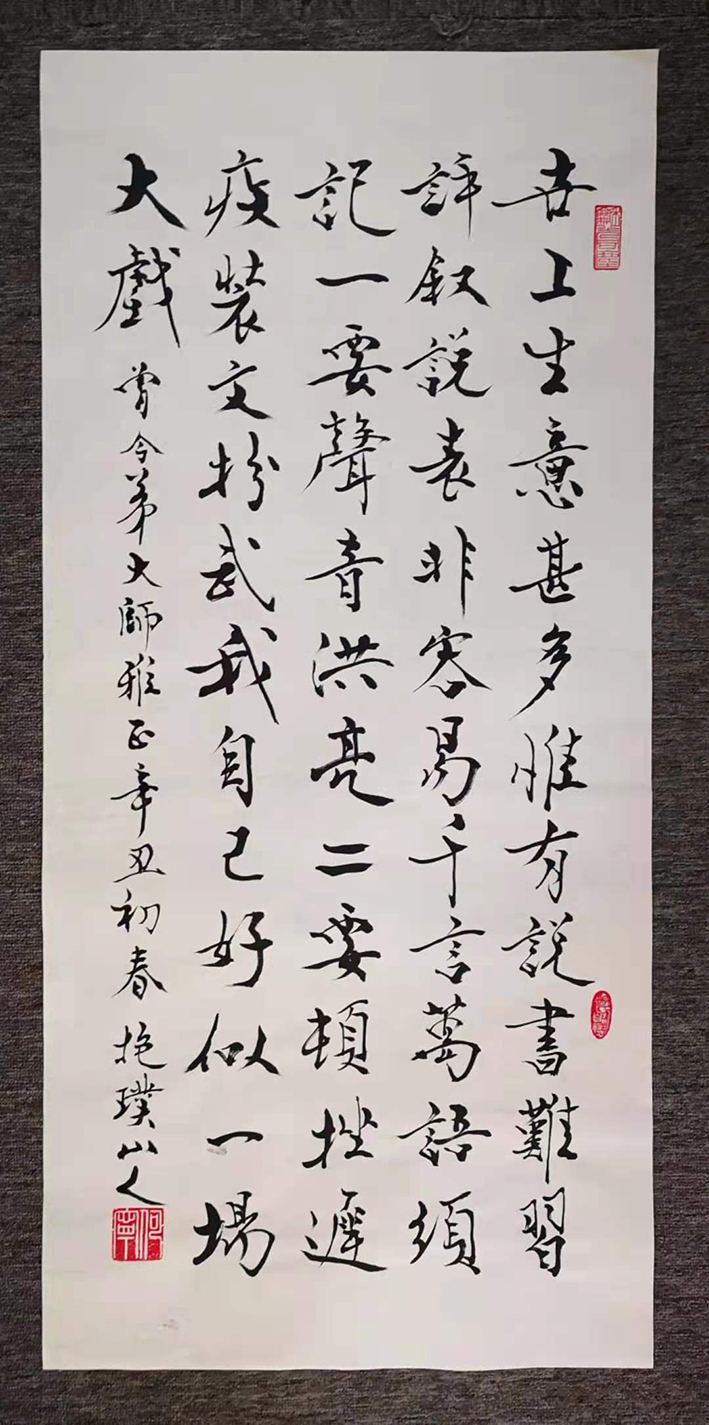 世上生意甚多惟有說書難習
評叙說表非容易千言萬語須
記一要聲音洪亮二要頓挫遲
疾裝文扮武我自己好似一場
大戲 曾令弟大師雅正辛丑初春 抱璞山人
何寧